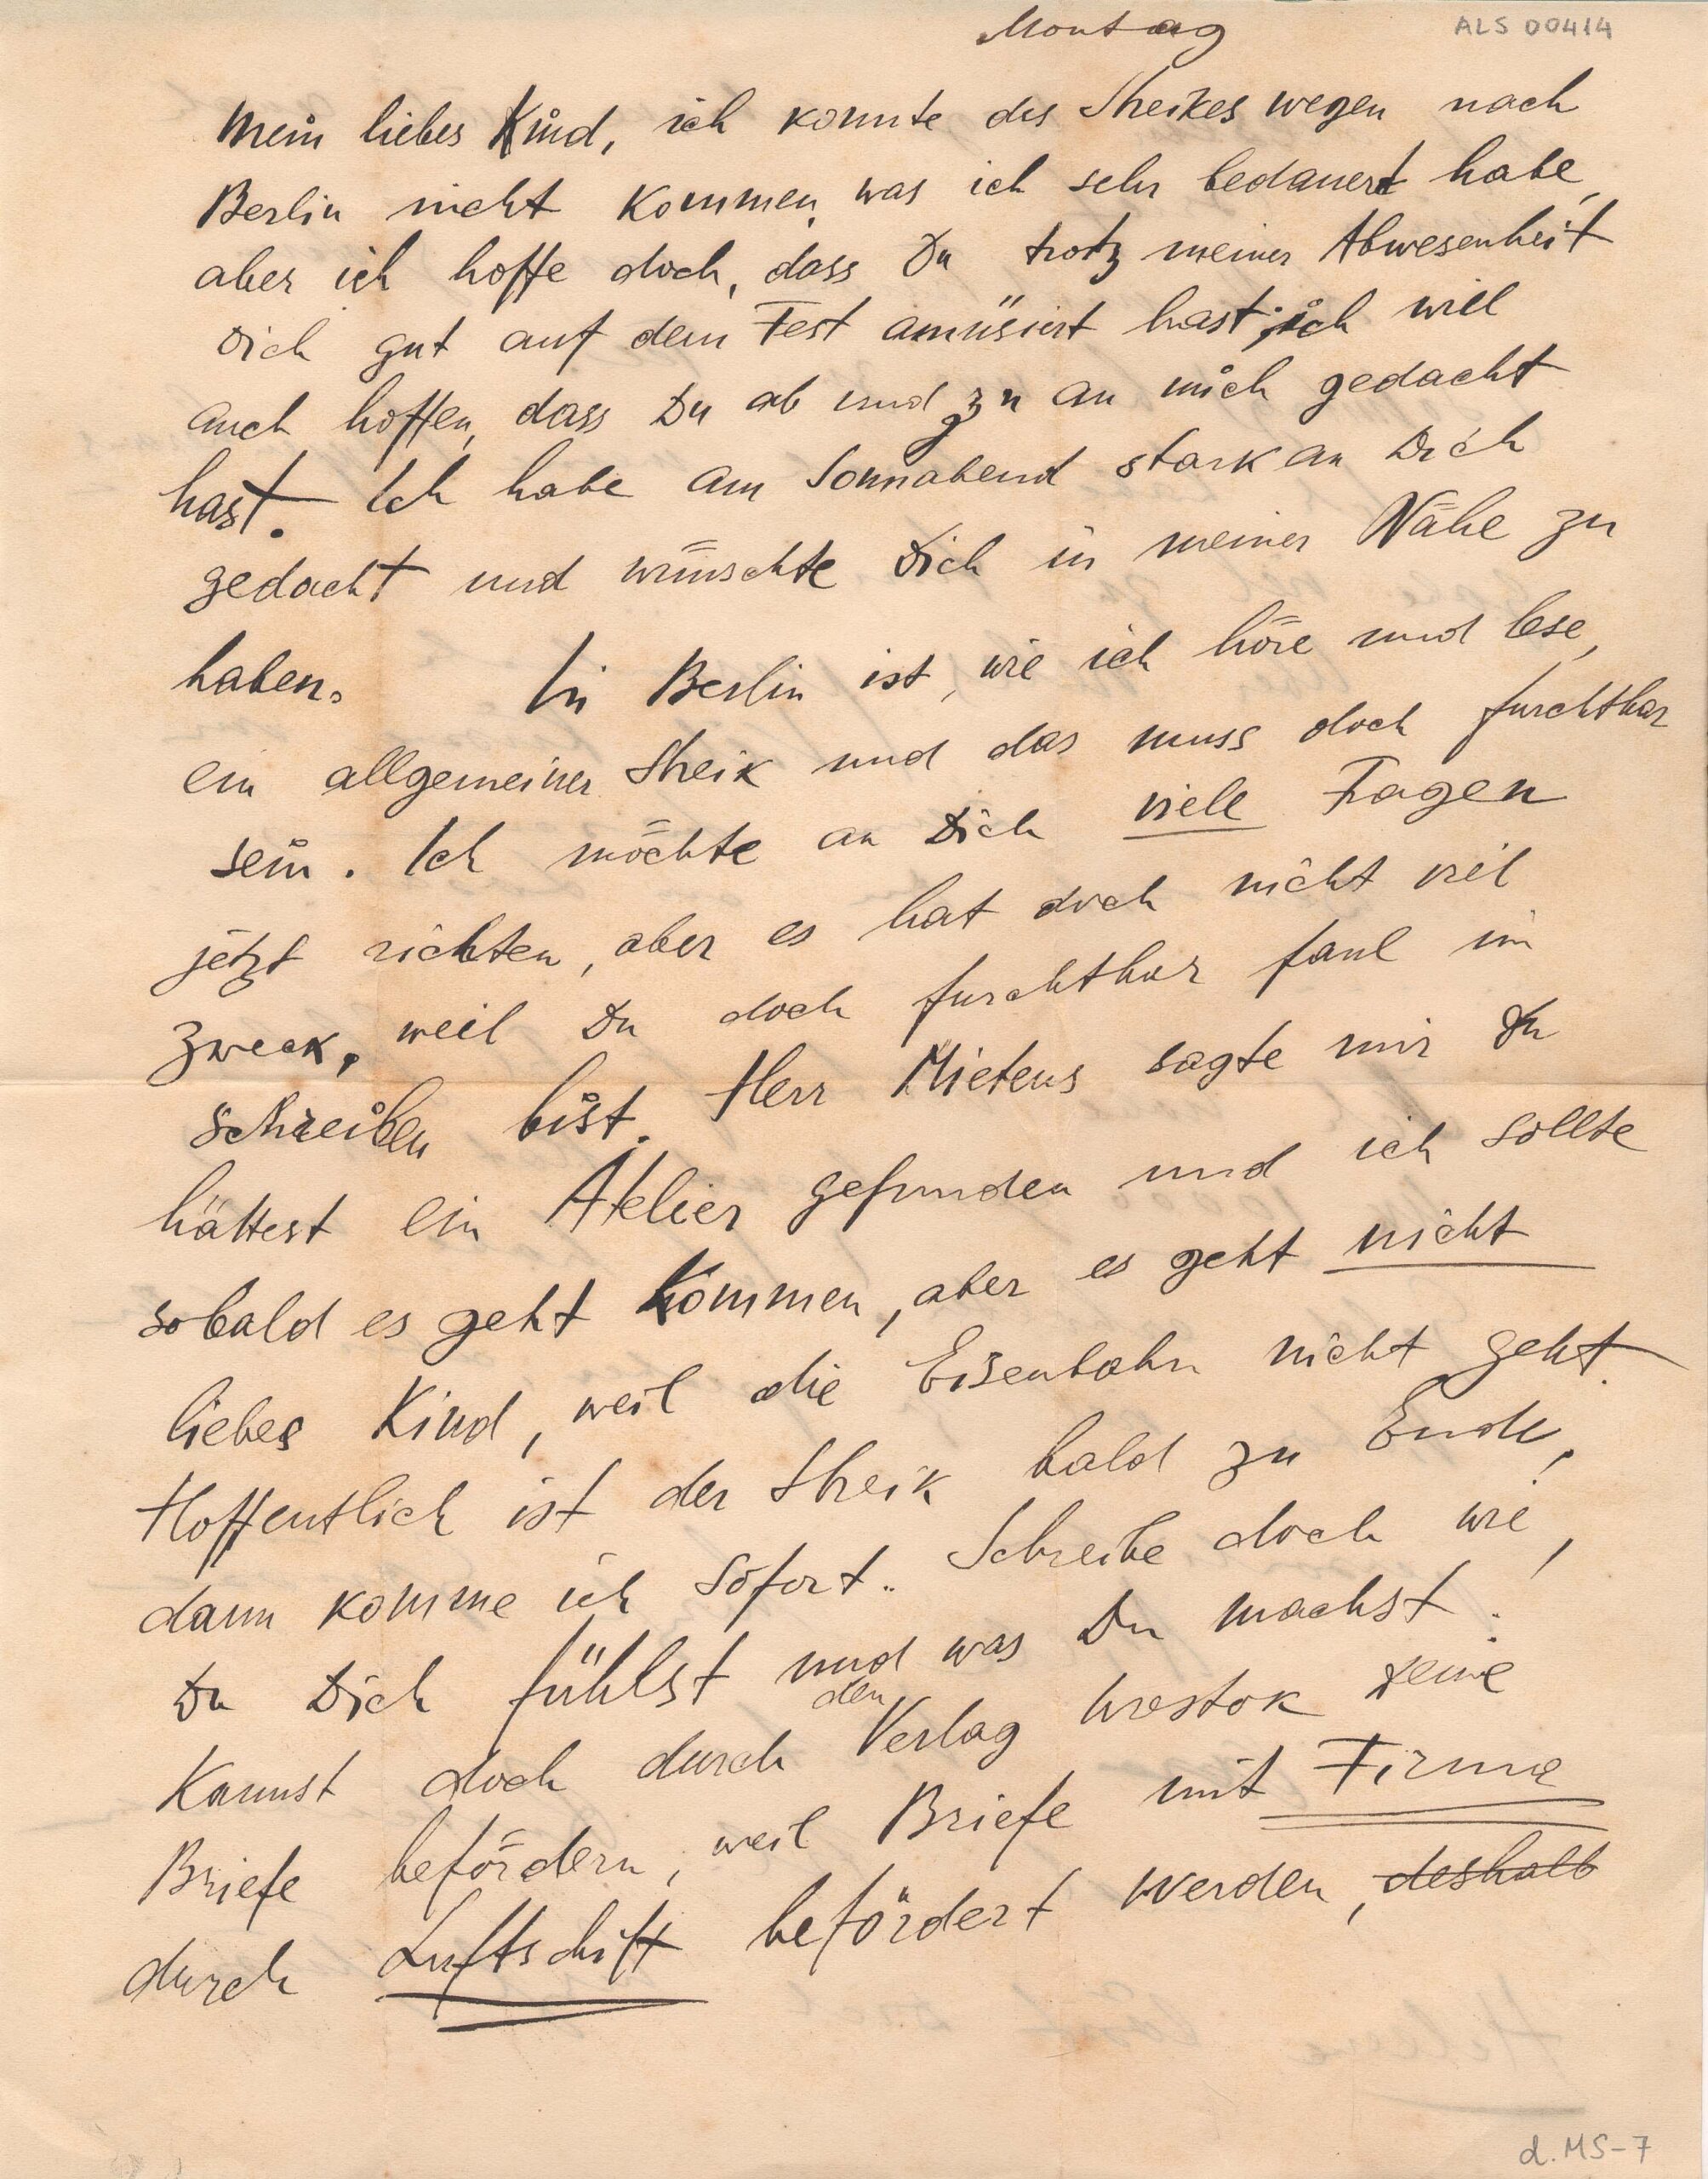 Montag
ALS 00414
Mein liebes Kind, ich konnte des Streikes wegen nach
Berlin nicht kommen, was ich sehr bedauert habe,
aber ich hoffe doch, dass Du trotz meiner Abwesenheit
Dich gut auf dem Fest amüsiert hast; ich will
auch hoffen, dass Du ab und zu an mich gedacht
hast. Ich habe am Sonnabend stark an Dich
gedacht und wünschte Dich in meiner Nähe zu
haben. In Berlin ist, wie ich höre und lese,
ein allgemeiner Streik und das muss doch furchtbar
sein. Ich möchte an Dich viele Fragen
jetzt richten, aber es hat doch nicht viel
Zweck, weil Du doch furchtbar faul im
schreiben bist. Herr Mietens sagte mir Du
hättest ein Atelier gefunden und ich sollte
sobald es geht kommen, aber es geht nicht
liebes Kind, weil die Eisenbahn nicht geht.
Hoffentlich ist der Streik bald zu Ende,
dann komme ich sofort. Schreibe doch wie
Du Dich fühlst und was Du machst!
Kannst doch durch den Verlag Wostok Deine
Briefe befördern, weil Briefe mit Firma
durch Luftschift befördert werden, deshalb
d. MS-7